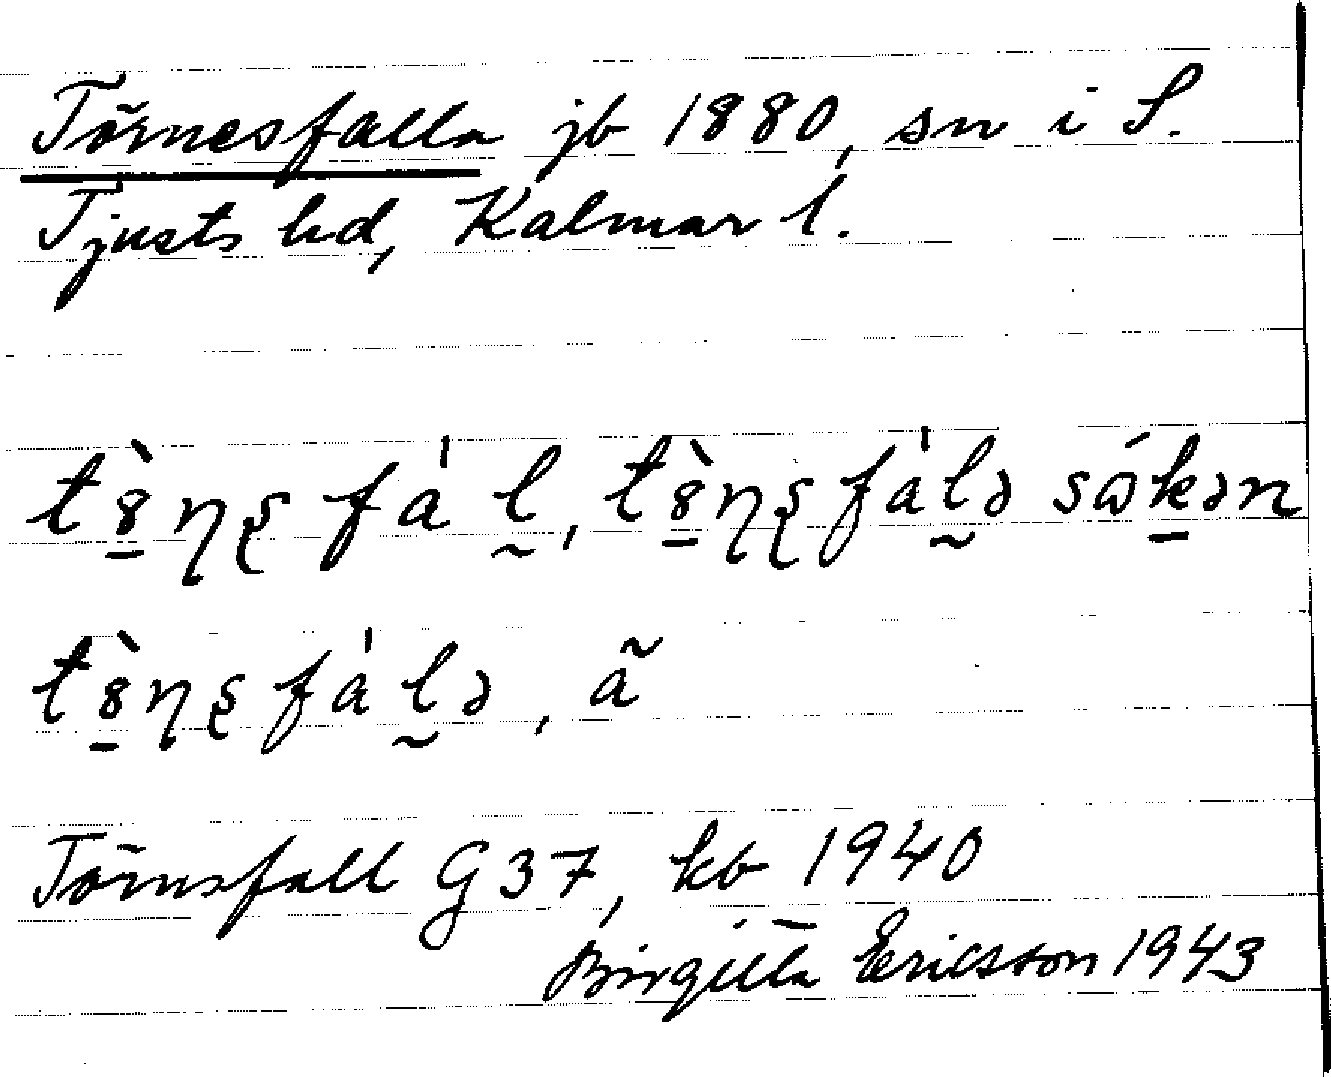 Törnesfalla jb 1880, sn i S.
Tjusts hd, Kalmar l.
tȣ̲̀ɳʂfa̍l̰, tȣ̲̀ɳʂfa̍l̰ə sɷ́k̲ən
tȣ̲̀ɳʂfa̍l̰ə, ã
Törnsfall G 37, kb 1940
Birgitta Ericsson 1943